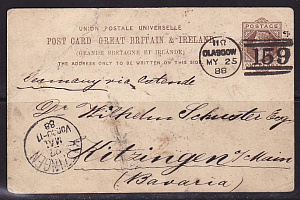 UNION POSTALE UNIVERSELLE
POST CARD-GREAT BRITAIN & IRELAND
(GRANDE BRETAGNE ET IRLANDE)
THE ADDRESS ONLY TO BE WRITTEN ON THIS SIDE
GLASGOW
MY 25
88
159
Germany via Ostende
Dr Wilhelm Schuster Esq
Kitzingen a/Main
(Bavaria)
KITZINGEN
27
MAI
88